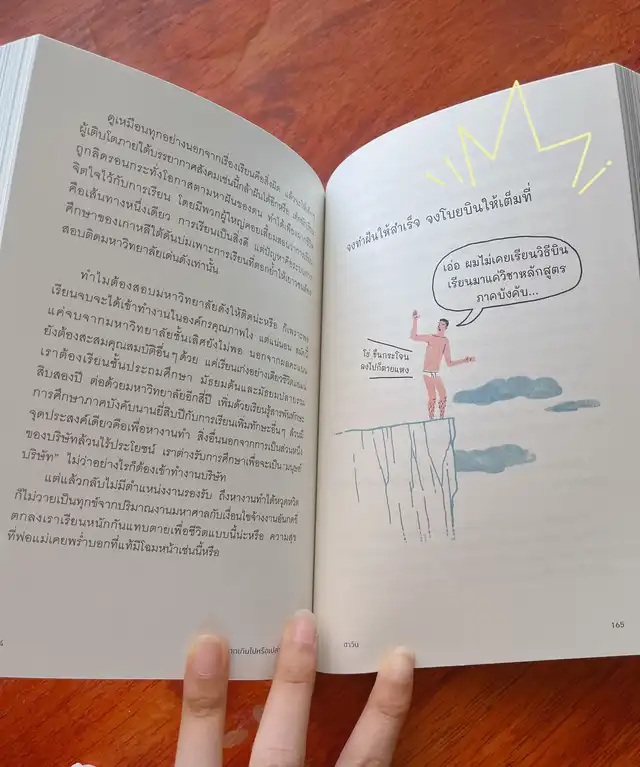 ดูเหมือนทุกอย่างนอกจากเรื่องเรียนคือสิ่งผิด แล้ว
ผู้เติบโตภายใต้บรรยากาศสังคมเช่นนี้กล้าฝันได้อีกหรือ
ถูกลิดรอนกระทั่งโอกาสตามหาฝันของตน ทำได้เพียง
จิตใจไว้กับการเรียน โดยมีพวกผู้ใหญ่คอยเสี้ยมสอนว่าการเรียน
คือเส้นทางหนึ่งเดียว การเรียนเป็นสิ่งดี แต่ปัญหาคือ
ศึกษาของเกาหลีใต้ดันบ่มเพาะการเรียนที่ตอกย้ำให้เยาวชน
สอบติดมหาวิทยาลัยเด่นดังเท่านั้น
ทำไมต้องสอบมหาวิทยาลัยดังให้ติดน่ะหรือ ก็เพราะ
เรียนจบจะได้เข้าทำงานในองค์กรคุณภาพไง แต่แน่นอน
แค่จบจากมหาวิทยาลัยชั้นเลิศยังไม่พอ นอกจากผลคะแนน
ยังต้องสะสมคุณสมบัติอื่นๆ ด้วย แค่เรียนอย่างเดียวชีวิต
เราต้องเรียนชั้นประถมศึกษา มัธยมต้นและมัธยมปลายรวม
สิบสองปี ต่อด้วยมหาวิทยาลัยอีกสี่ปี เพิ่มด้วยเรียนรู้สารพัดทักษะ
การศึกษาภาคบังคับนานยี่สิบปีกับการเรียนเพิ่มทักษะอื่นๆ ล้วนมี
จุดประสงค์เดียวคือเพื่อหางานทำ สิ่งอื่นนอกจากการเป็นส่วนหนึ่ง
ของบริษัทล้วนไร้ประโยชน์ เราต่างรับการศึกษาเพื่อจะเป็น "มนุษย์
บริษัท" ไม่ว่าอย่างไรก็ต้องเข้าทำงานบริษัท
แต่แล้วกลับไม่มีตำแหน่งงานรองรับ ถึงหางานทำได้หวุดหวิด
ก็ไม่วายเป็นทุกข์จากปริมาณงานมหาศาลกับเงื่อนไขจ้างงานอันกดขี่
ตกลงเราเรียนหนักกันแทบตายเพื่อชีวิตแบบนี้น่ะหรือ ความสุข
ที่พ่อแม่เคยพร่ำบอกที่แท้มีโฉมหน้าเช่นนี้หรือ
จงทำฝันให้สำเร็จ จงโบยบินให้เต็มที่
เอ่อ ผมไม่เคยเรียนวิธีบิน
เรียนมาแค่วิชาหลักสูตร
ภาคบังคับ...
โธ่ ขืนกระโจน
ลงไปก็ตายแหง
ฮาวัน
165